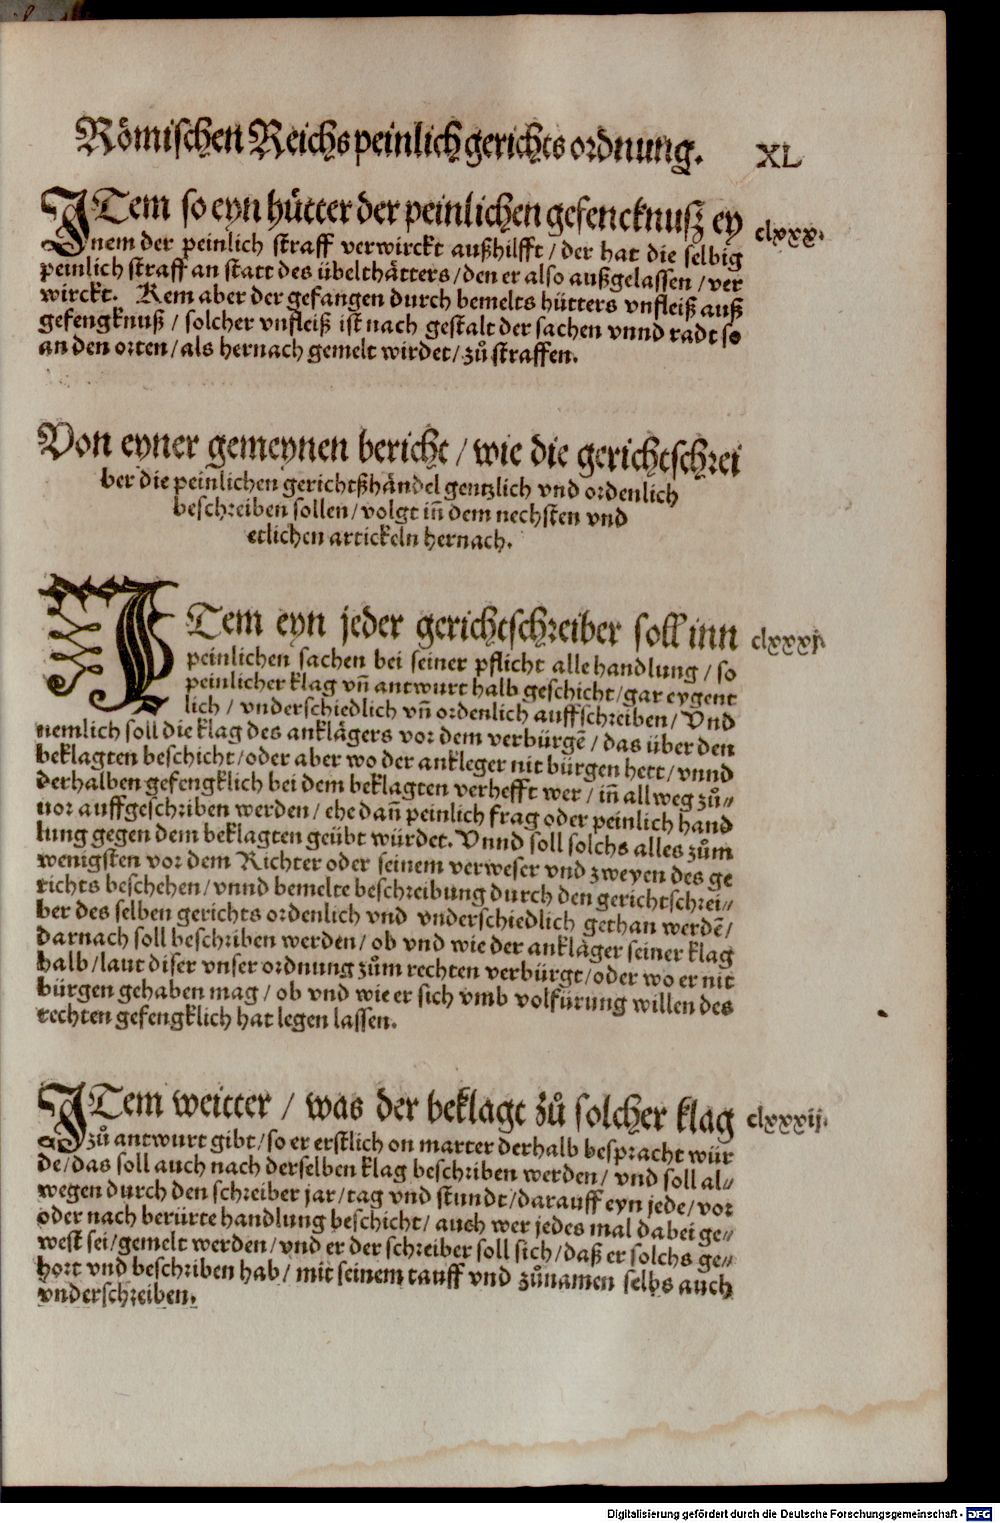 Römischen Reichs peinlich gerichts ordnung. XL
ITem so eyn hütter der peinlichen gefencknusz ey clxxx.
nem der peinlich straff verwirckt außhilfft / der hat die selbig
peinlich straff an statt des übelthätters / den er also außgelassen / ver
wirckt. Kem aber der gefangen durch bemelts hütters vnfleiß auß
gefengknuß / solcher vnfleiß ist nach gestalt der sachen vnnd radt so
an den orten / als hernach gemelt wirdet / zů straffen.
Von eyner gemeynen bericht / wie die gerichtschrei
ber die peinlichen gerichtßhändel gentzlich vnd ordenlich
beschreiben sollen / volgt iñ dem nechsten vnd
etlichen artickeln hernach.
ITem eyn jeder gerichtschreiber soll inn clxxxj.
peinlichen sachen bei seiner pflicht alle handlung / so
peinlicher klag vñ antwurt halb geschicht / gar eygent
lich / vnderschiedlich vñ ordenlich auffschreiben / Vnd
nemlich soll die klag des anklägers vor dem verbürgẽ / das über den
beklagten beschicht / oder aber wo der ankleger nit bürgen hett / vnnd
derhalben gefengklich bei dem beklagten verhefft wer / iñ allweg zů⸗
uor auffgeschriben werden / ehe dañ peinlich frag oder peinlich hand
lung gegen dem beklagten geübt würdet. Vnnd soll solchs alles zům
wenigsten vor dem Richter oder seinem verweser vnd zweyen des ge
richts beschehen / vnnd bemelte beschreibung durch den gerichtschrei⸗
ber des selben gerichts ordenlich vnd vnderschiedlich gethan werdẽ /
darnach soll beschriben werden / ob vnd wie der ankläger seiner klag
halb / laut diser vnser ordnung zům rechten verbürgt / oder wo er nit
bürgen gehaben mag / ob vnd wie er sich vmb volfürung willen des
rechten gefengklich hat legen lassen.
ITem weitter / was der beklagt zů solcher klag clxxxij.
zů antwurt gibt / so er erstlich on marter derhalb bespracht wür
de / das soll auch nach derselben klag beschriben werden / vnd soll al⸗
wegen durch den schreiber jar / tag vnd stundt / darauff eyn jede / vor
oder nach berürte handlung beschicht / auch wer jedes mal dabei ge⸗
west sei / gemelt werden / vnd er der schreiber soll sich / daß er solchs ge⸗
hort vnd beschriben hab / mit seinem tauff vnd zůnamen selbs auch
vnderschreiben.
Digitalisierung gefördert durch die Deutsche Forschungsgemeinschaft - DFG